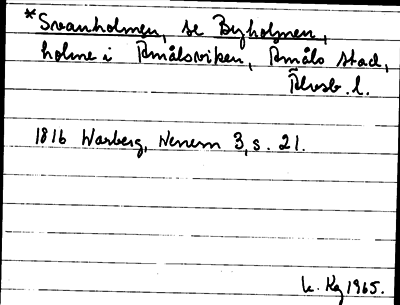 *Svanholmen, se Byholmen,
holme i Åmålsviken, Åmåls stad,
Älvsb. l.
1816 Warberg, Wenern 3, s. 21.
L. Kg 1965.